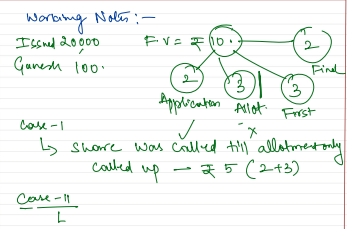 Working Notes:-
Issued 20000 F.V = ₹ 10. 2
Ganesh 100. Final
2 3 3
Application Allot. First
Case-I x
↳ Share was called till allotment only
called up — ₹ 5 (2+3)
Case-II
L